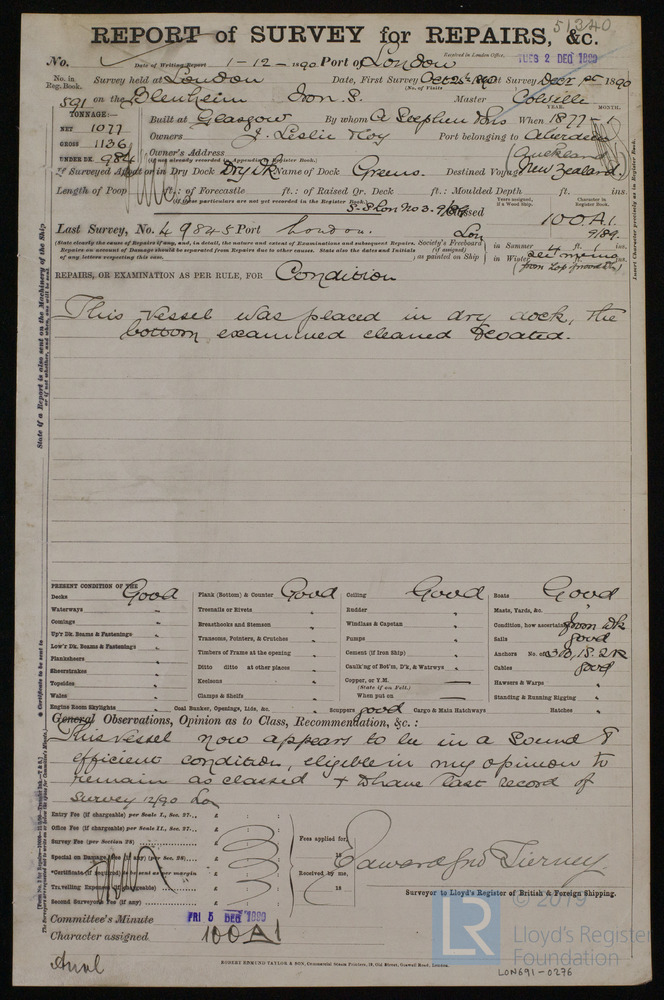 51340
REPORT of SURVEY for REPAIRS, &c.
Received in London Office.
No. Date of Writing Report 1-12-1890 Port of London TUES 2 DEC 1890
No. in Reg. Book. Survey held at London Date, First Survey Oct 25th 1890 Last Survey Decr 1st 1890
(No. of Visits
591 on the Blenheim Iron S. Master Colville
TONNAGE:— YEAR. MONTH.
NET 1077 Built at Glasgow By whom A Stephen & Sons When 1877-1
GROSS 1136 Owners J. Leslie Port belonging to Aberdeen
UNDER DK. 984 Owner's Address (Auckland
(if not already recorded in Appendix to Register Book.)
If Surveyed Afloat or in Dry Dock Dry Dk Name of Dock Greens. Destined Voyage New Zealand.
Length of Poop ft.; of Forecastle ft.; of Raised Qr. Deck ft.; Moulded Depth ft. ins.
(If these particulars are not yet recorded in the Register Book.)
Years assigned, if a Wood Ship. Character in Register Book.
S.S Lon No 3. 9/89 Classed 100 A1.
Last Survey, No. 49845 Port London. Lon 9/89.
(State clearly the cause of Repairs if any, and, in detail, the nature and extent of Examinations and subsequent Repairs.
Repairs on account of Damage should be separated from Repairs due to other causes. State also the dates and Initials
of any letters respecting this case.
Society's Freeboard (if assigned) ; as painted on Ship
in Summer 4 ft. 1 ins.
in Winter
REPAIRS, OR EXAMINATION AS PER RULE, FOR Condition
This vessel was placed in dry dock, the
bottom, examined cleaned & coated.
PRESENT CONDITION OF THE
Decks Good Plank (Bottom) & Counter Good Ceiling Good Boats Good
Waterways " Treenails or Rivets " Rudder " Masts, Yards, &c. "
Comings " Breasthooks and Stemson " Windlass & Capstan " Condition, how ascertained from Dk
Up'r Dk. Beams & Fastenings " Transoms, Pointers, & Crutches " Pumps " Sails good
Low'r Dk. Beams & Fastenings " Timbers of Frame at the opening " Cement (if Iron Ship) " Anchors No. of 3B, 1S. 2K
Planksheers " Ditto ditto at other places " Caulk'ng of Bot'm, D'k, & Watrwys " Cables good
Sheerstrakes " Keelsons " Copper, or Y.M. — Hawsers & Warps "
(State if on Felt.)
Topsides " Clamps & Shelfs " When put on — Standing & Running Rigging "
Wales "
Engine Room Skylights — Coal Bunker, Openings, Lids, &c. " Scuppers good Cargo & Main Hatchways " Hatches "
General Observations, Opinion as to Class, Recommendation, &c. :
This vessel now appears to be in a sound &
efficient condition, eligible in my opinion to
remain as classed & to have last record of
survey 12/90 Lon
Entry Fee (if chargeable) per Scale I., Sec. 27... £ : :
Office Fee (if chargeable) per Scale II., Sec. 27... £ : :
Survey Fee (per Section 28) £ : :
Fees applied for,
18
Special on Damage Fee (if any) (per Sec. 28) £ : :
Received by me,
*Certificate (if required) to be sent as per margin £ : :
Travelling Expenses (if chargeable) £ : :
18
Second Surveyor's Fee (if any) £ : :
Edward Jno Tierney
Surveyor to Lloyd's Register of British & Foreign Shipping.
Committee's Minute FRI 5 DEC 1890
Character assigned 100 A1
ROBERT EDMUND TAYLOR & SON, Commercial Steam Printers, 19, Old Street, Goswell Road, London.
State if a Report is also sent on the Machinery of the Ship
Insert Character precisely as in Register Book.
© 2019
LR
Lloyd's Register
Foundation
LON691-0276